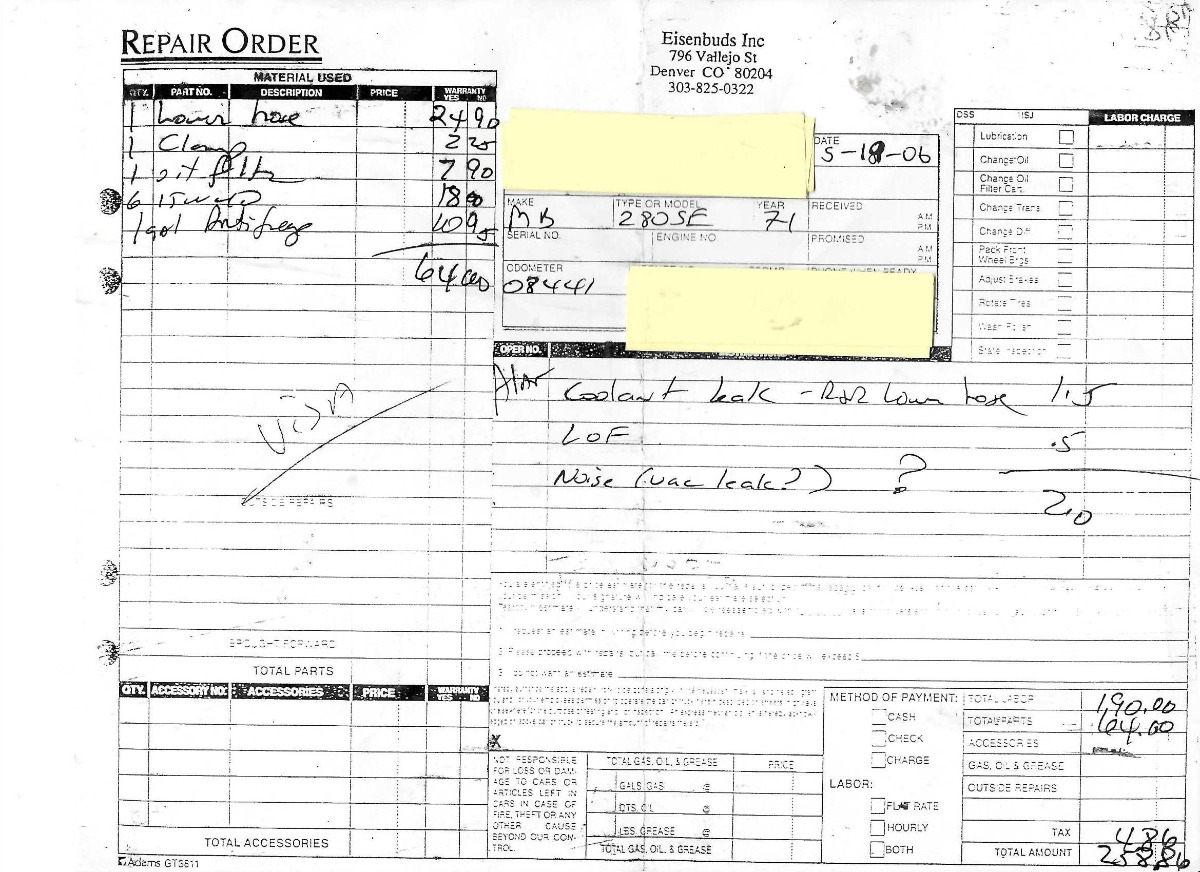 REPAIR ORDER
Eisenbuds Inc
796 Vallejo St
Denver CO 80204
303-825-0322
MATERIAL USED
QTY. PART NO. DESCRIPTION PRICE WARRANTY YES NO
1 Lower hose 24 90
1 Clamp 2 25
1 oil filter 7 90
6 15W40 18 00
1 gal Antifreeze 10 95
64.00
VISA
OUTSIDE REPAIRS
BROUGHT FORWARD
TOTAL PARTS
QTY. ACCESSORY NO. ACCESSORIES PRICE WARRANTY YES NO
TOTAL ACCESSORIES
Adams GT3811
DATE
5-18-06
MAKE TYPE OR MODEL YEAR RECEIVED
MB 280SE 71 AM
PM
SERIAL NO. ENGINE NO. PROMISED
AM
PM
ODOMETER
08441
LABOR CHARGE
Lubrication
Change Oil
Change Oil
Filter Cart.
Change Trans.
Change Diff
Pack Front
Wheel Brgs
Adjust Brakes
Rotate Tires
Wash Polish
State Inspection
OPER NO.
Coolant leak - R&R Lower hose 1.5
LOF .5
Noise (vac leak?) ?
2.0
1. I request an estimate in writing before you begin repairs.
2. Please proceed with repairs, but call me before continuing if the price will exceed $
3. I do not want an estimate.
X
NOT RESPONSIBLE
FOR LOSS OR DAM-
AGE TO CARS OR
ARTICLES LEFT IN
CARS IN CASE OF
FIRE, THEFT OR ANY
OTHER CAUSE
BEYOND OUR CON-
TROL.
TOTAL GAS, OIL, & GREASE PRICE
GALS. GAS @
QTS. OIL @
LBS. GREASE @
TOTAL GAS, OIL & GREASE
METHOD OF PAYMENT:
CASH
CHECK
CHARGE
LABOR:
FLAT RATE
HOURLY
BOTH
TOTAL LABOR 190.00
TOTAL PARTS 64.00
ACCESSORIES
GAS, OIL & GREASE
OUTSIDE REPAIRS
TAX 4 86
TOTAL AMOUNT 258.86